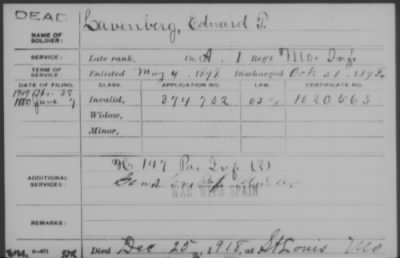 DEAD
Lavenberg, Edward P.
NAME OF SOLDIER:
SERVICE: Late rank, Co. A, 1 Reg't Mo. Inf.
TERM OF SERVICE: Enlisted May 4, 1898 Discharged Oct. 31, 1898
DATE OF FILING. CLASS. APPLICATION NO. LAW. CERTIFICATE NO.
Invalid, 374,732 1020563
June 7
Widow,
Minor,
147 Pa. Inf.
ADDITIONAL SERVICES:
WAR WITH SPAIN
REMARKS:
Died Dec 25, 1918, at St Louis Mo